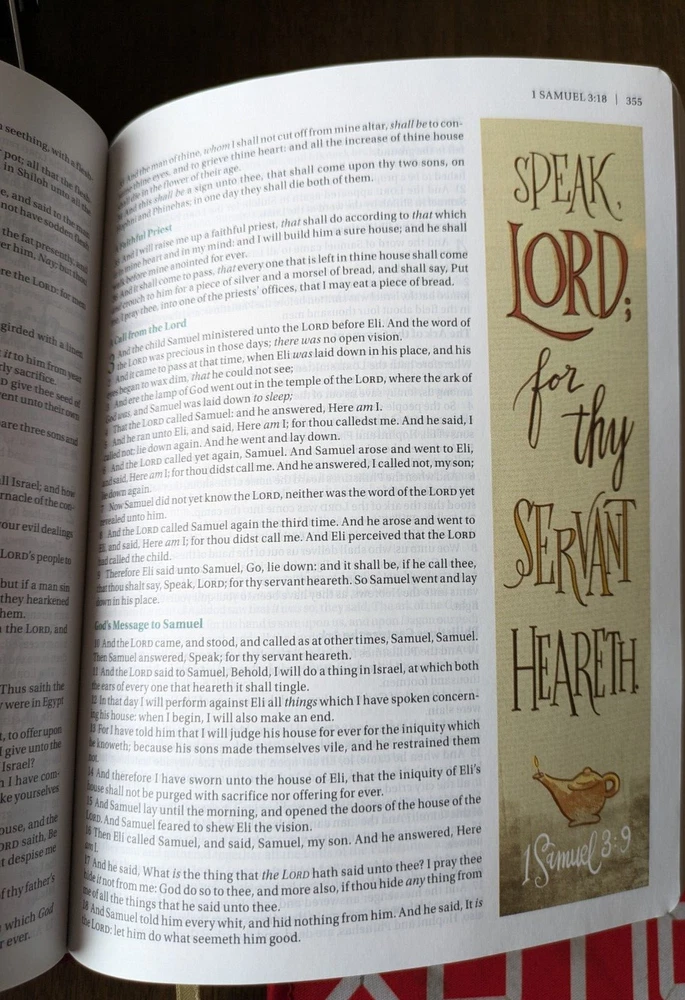 seething, with a flesh
pot; all that the flesh
in Shiloh unto all the
e, and said to the man
not have sodden flesh
the fat presently, and
er him, Nay; but thou
re the LORD: for men
girded with a linen
it to him from year
rly sacrifice.
D give thee seed of
ent unto their own
are three sons and
ll Israel; and how
rnacle of the con-
your evil dealings
LORD's people to
but if a man sin
they hearkened
hem.
the LORD, and
Thus saith the
were in Egypt
t, to offer upon
I give unto the
Israel?
h I have com-
ke yourselves
ouse, and the
ORD saith, Be
t despise me
of thy father's
which God
r ever.
1 SAMUEL 3:18 | 355
And the man of thine, whom I shall not cut off from mine altar, shall be to con-
thine eyes, and to grieve thine heart: and all the increase of thine house
die in the flower of their age.
And this shall be a sign unto thee, that shall come upon thy two sons, on
and Phinehas; in one day they shall die both of them.
Faithful Priest
And I will raise me up a faithful priest, that shall do according to that which
in mine heart and in my mind: and I will build him a sure house; and he shall
walk before mine anointed for ever.
And it shall come to pass, that every one that is left in thine house shall come
crouch to him for a piece of silver and a morsel of bread, and shall say, Put
I pray thee, into one of the priests' offices, that I may eat a piece of bread.
A Call from the Lord
3 And the child Samuel ministered unto the LORD before Eli. And the word of
the LORD was precious in those days; there was no open vision.
2 And it came to pass at that time, when Eli was laid down in his place, and his
eyes began to wax dim, that he could not see;
3 And ere the lamp of God went out in the temple of the LORD, where the ark of
God was, and Samuel was laid down to sleep;
4 That the LORD called Samuel: and he answered, Here am I.
5 And he ran unto Eli, and said, Here am I; for thou calledst me. And he said, I
called not; lie down again. And he went and lay down.
6 And the LORD called yet again, Samuel. And Samuel arose and went to Eli,
and said, Here am I; for thou didst call me. And he answered, I called not, my son;
lie down again.
7 Now Samuel did not yet know the LORD, neither was the word of the LORD yet
revealed unto him.
8 And the LORD called Samuel again the third time. And he arose and went to
Eli, and said, Here am I; for thou didst call me. And Eli perceived that the LORD
had called the child.
9 Therefore Eli said unto Samuel, Go, lie down: and it shall be, if he call thee,
that thou shalt say, Speak, LORD; for thy servant heareth. So Samuel went and lay
down in his place.
God's Message to Samuel
10 And the LORD came, and stood, and called as at other times, Samuel, Samuel.
Then Samuel answered, Speak; for thy servant heareth.
11 And the LORD said to Samuel, Behold, I will do a thing in Israel, at which both
the ears of every one that heareth it shall tingle.
12 In that day I will perform against Eli all things which I have spoken concern-
ing his house: when I begin, I will also make an end.
13 For I have told him that I will judge his house for ever for the iniquity which
he knoweth; because his sons made themselves vile, and he restrained them
not.
14 And therefore I have sworn unto the house of Eli, that the iniquity of Eli's
house shall not be purged with sacrifice nor offering for ever.
15 And Samuel lay until the morning, and opened the doors of the house of the
LORD. And Samuel feared to shew Eli the vision.
16 Then Eli called Samuel, and said, Samuel, my son. And he answered, Here
am I.
17 And he said, What is the thing that the LORD hath said unto thee? I pray thee
hide it not from me: God do so to thee, and more also, if thou hide any thing from
me of all the things that he said unto thee.
18 And Samuel told him every whit, and hid nothing from him. And he said, It is
the LORD: let him do what seemeth him good.
SPEAK,
LORD;
for
thy
SERVANT
HEARETH.
1 Samuel 3:9